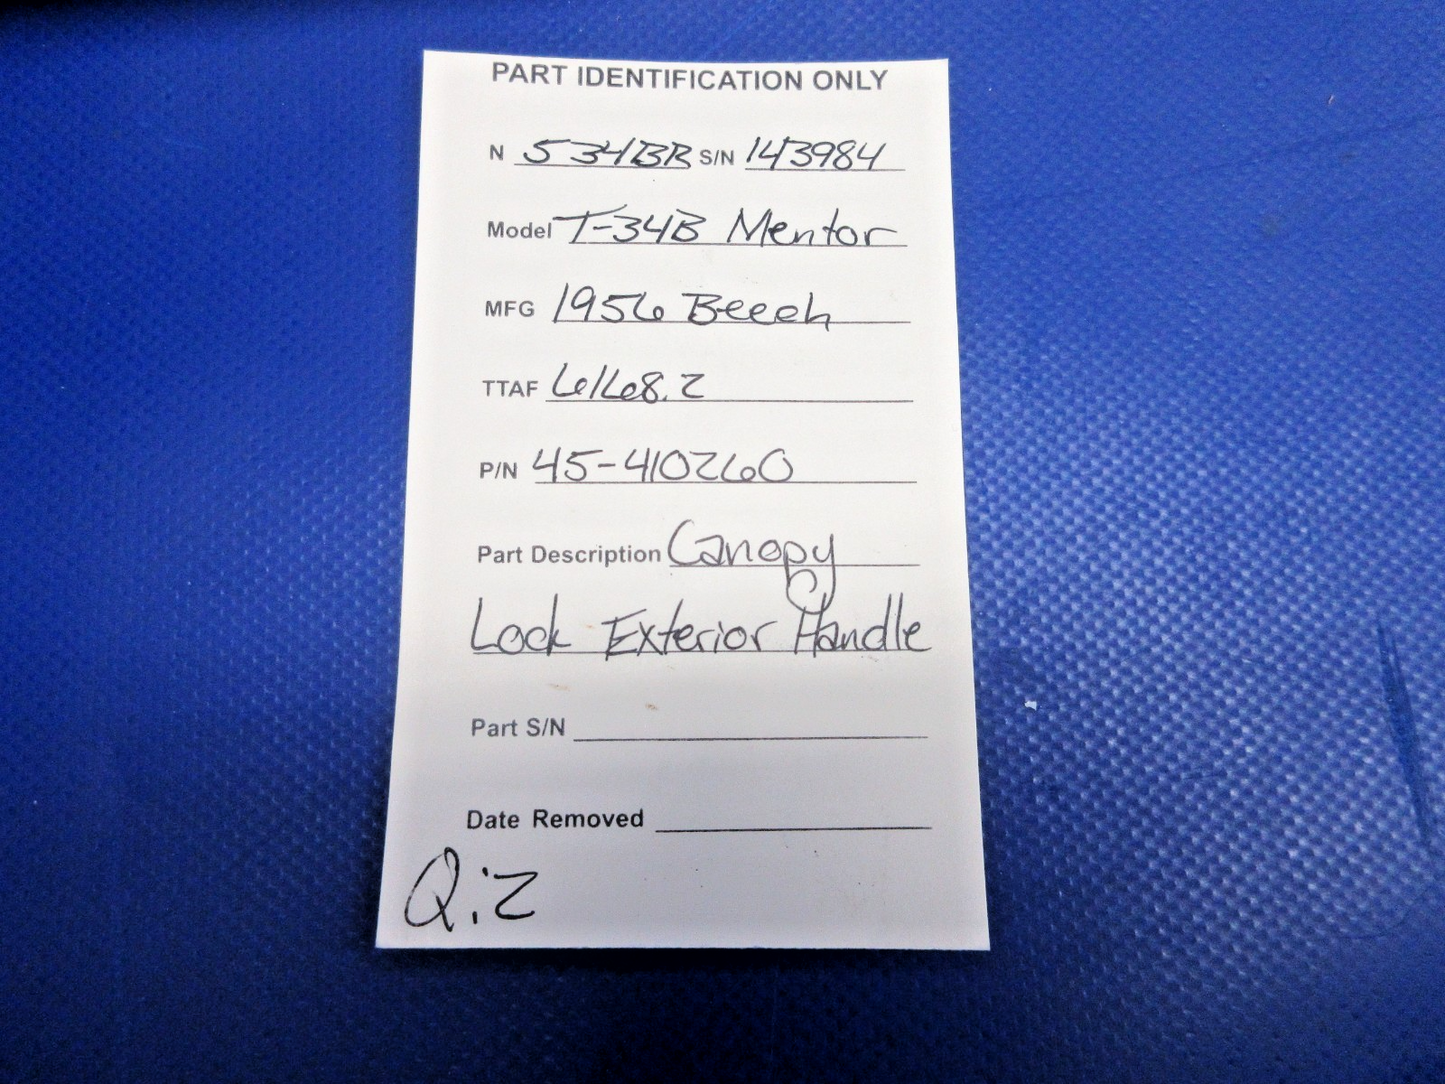 PART IDENTIFICATION ONLY
N 534BR S/N 143984
Model T-34B Mentor
MFG 1956 Beech
TTAF 6168.2
P/N 45-410260
Part Description Canopy
Lock Exterior Handle
Part S/N
Date Removed
Q:2